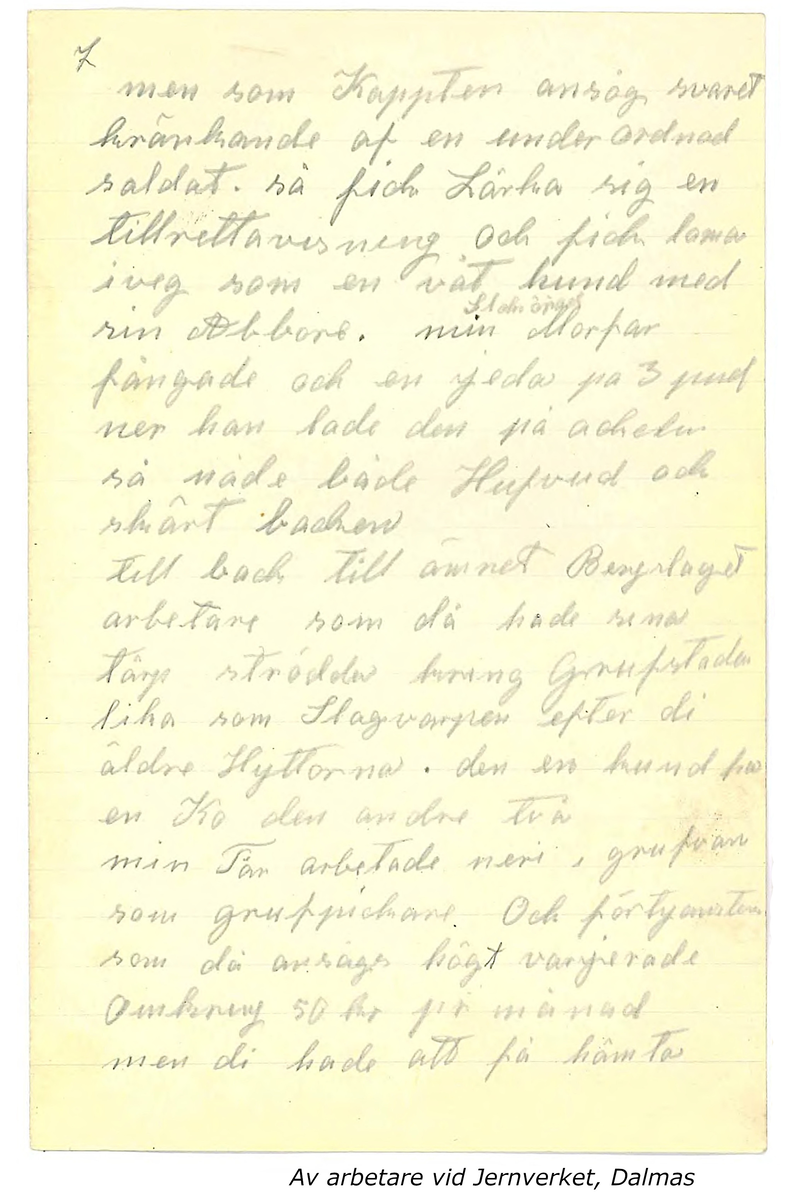 7
men som Kappten ansog svaret
kränkande af en under ordnad
saldat. så fick Lärka sig en
tillrettavisning och fick loma
iveg som en våt hund med
sin Abbore. min Morfar
fångade och en jeda på 3 pud
ner han lade den på ackeln
så nåde både Hufvud och
skärt backen
till back till ämnet Bergslaget
arbetare som då hade sina
tårp strödda kring Grufstaden
lika som Slagvarpen efter di
äldre Hyttorna. den en kund få
en Ko den andre två
min Far arbetade neri, grufvan
som grufpickare Och förtjensten
som då ansågs högt varjerade
Omkring 50 kr pr månad
men di hade att få hämta
Av arbetare vid Jernverket, Dalmas